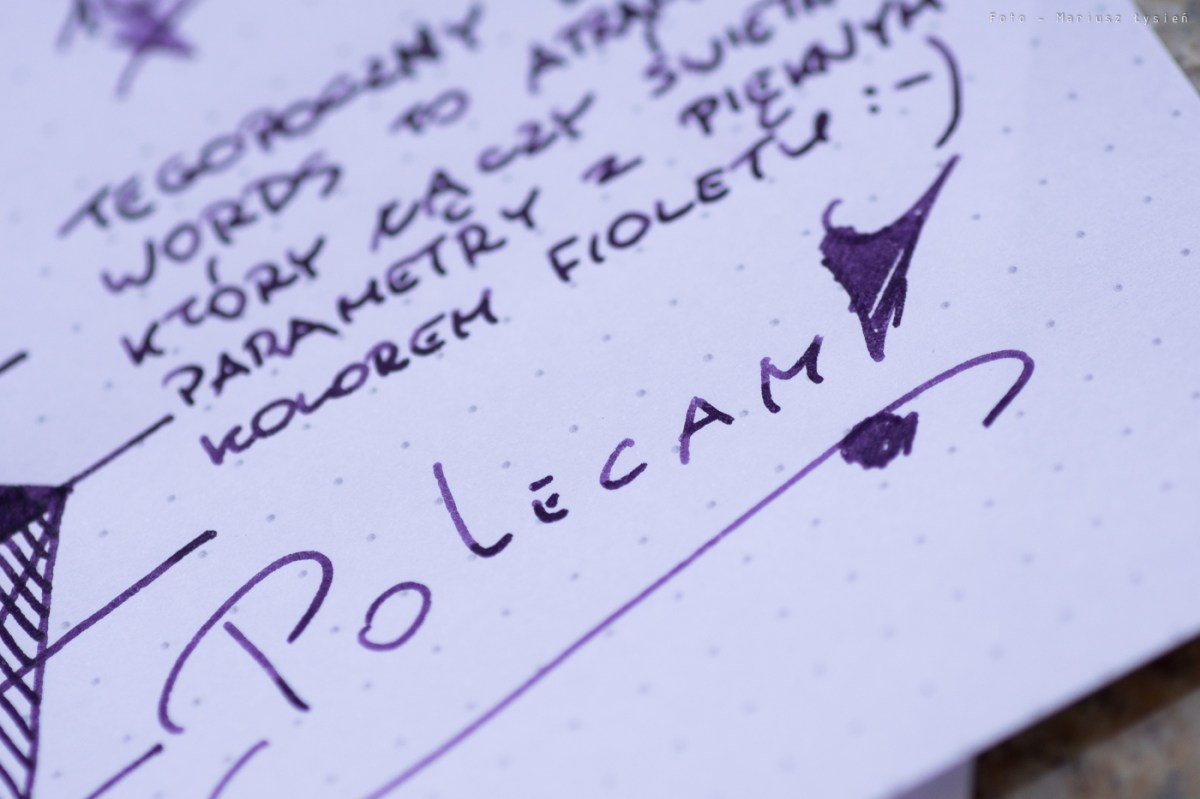 Foto - Mariusz Łysień
TEGOROCZNY
WORDS TO ATRAM
KTÓRY ŁĄCZY ŚWIETN
PARAMETRY Z PIĘKNYM
KOLOREM FIOLETU :-)
POLECAM!